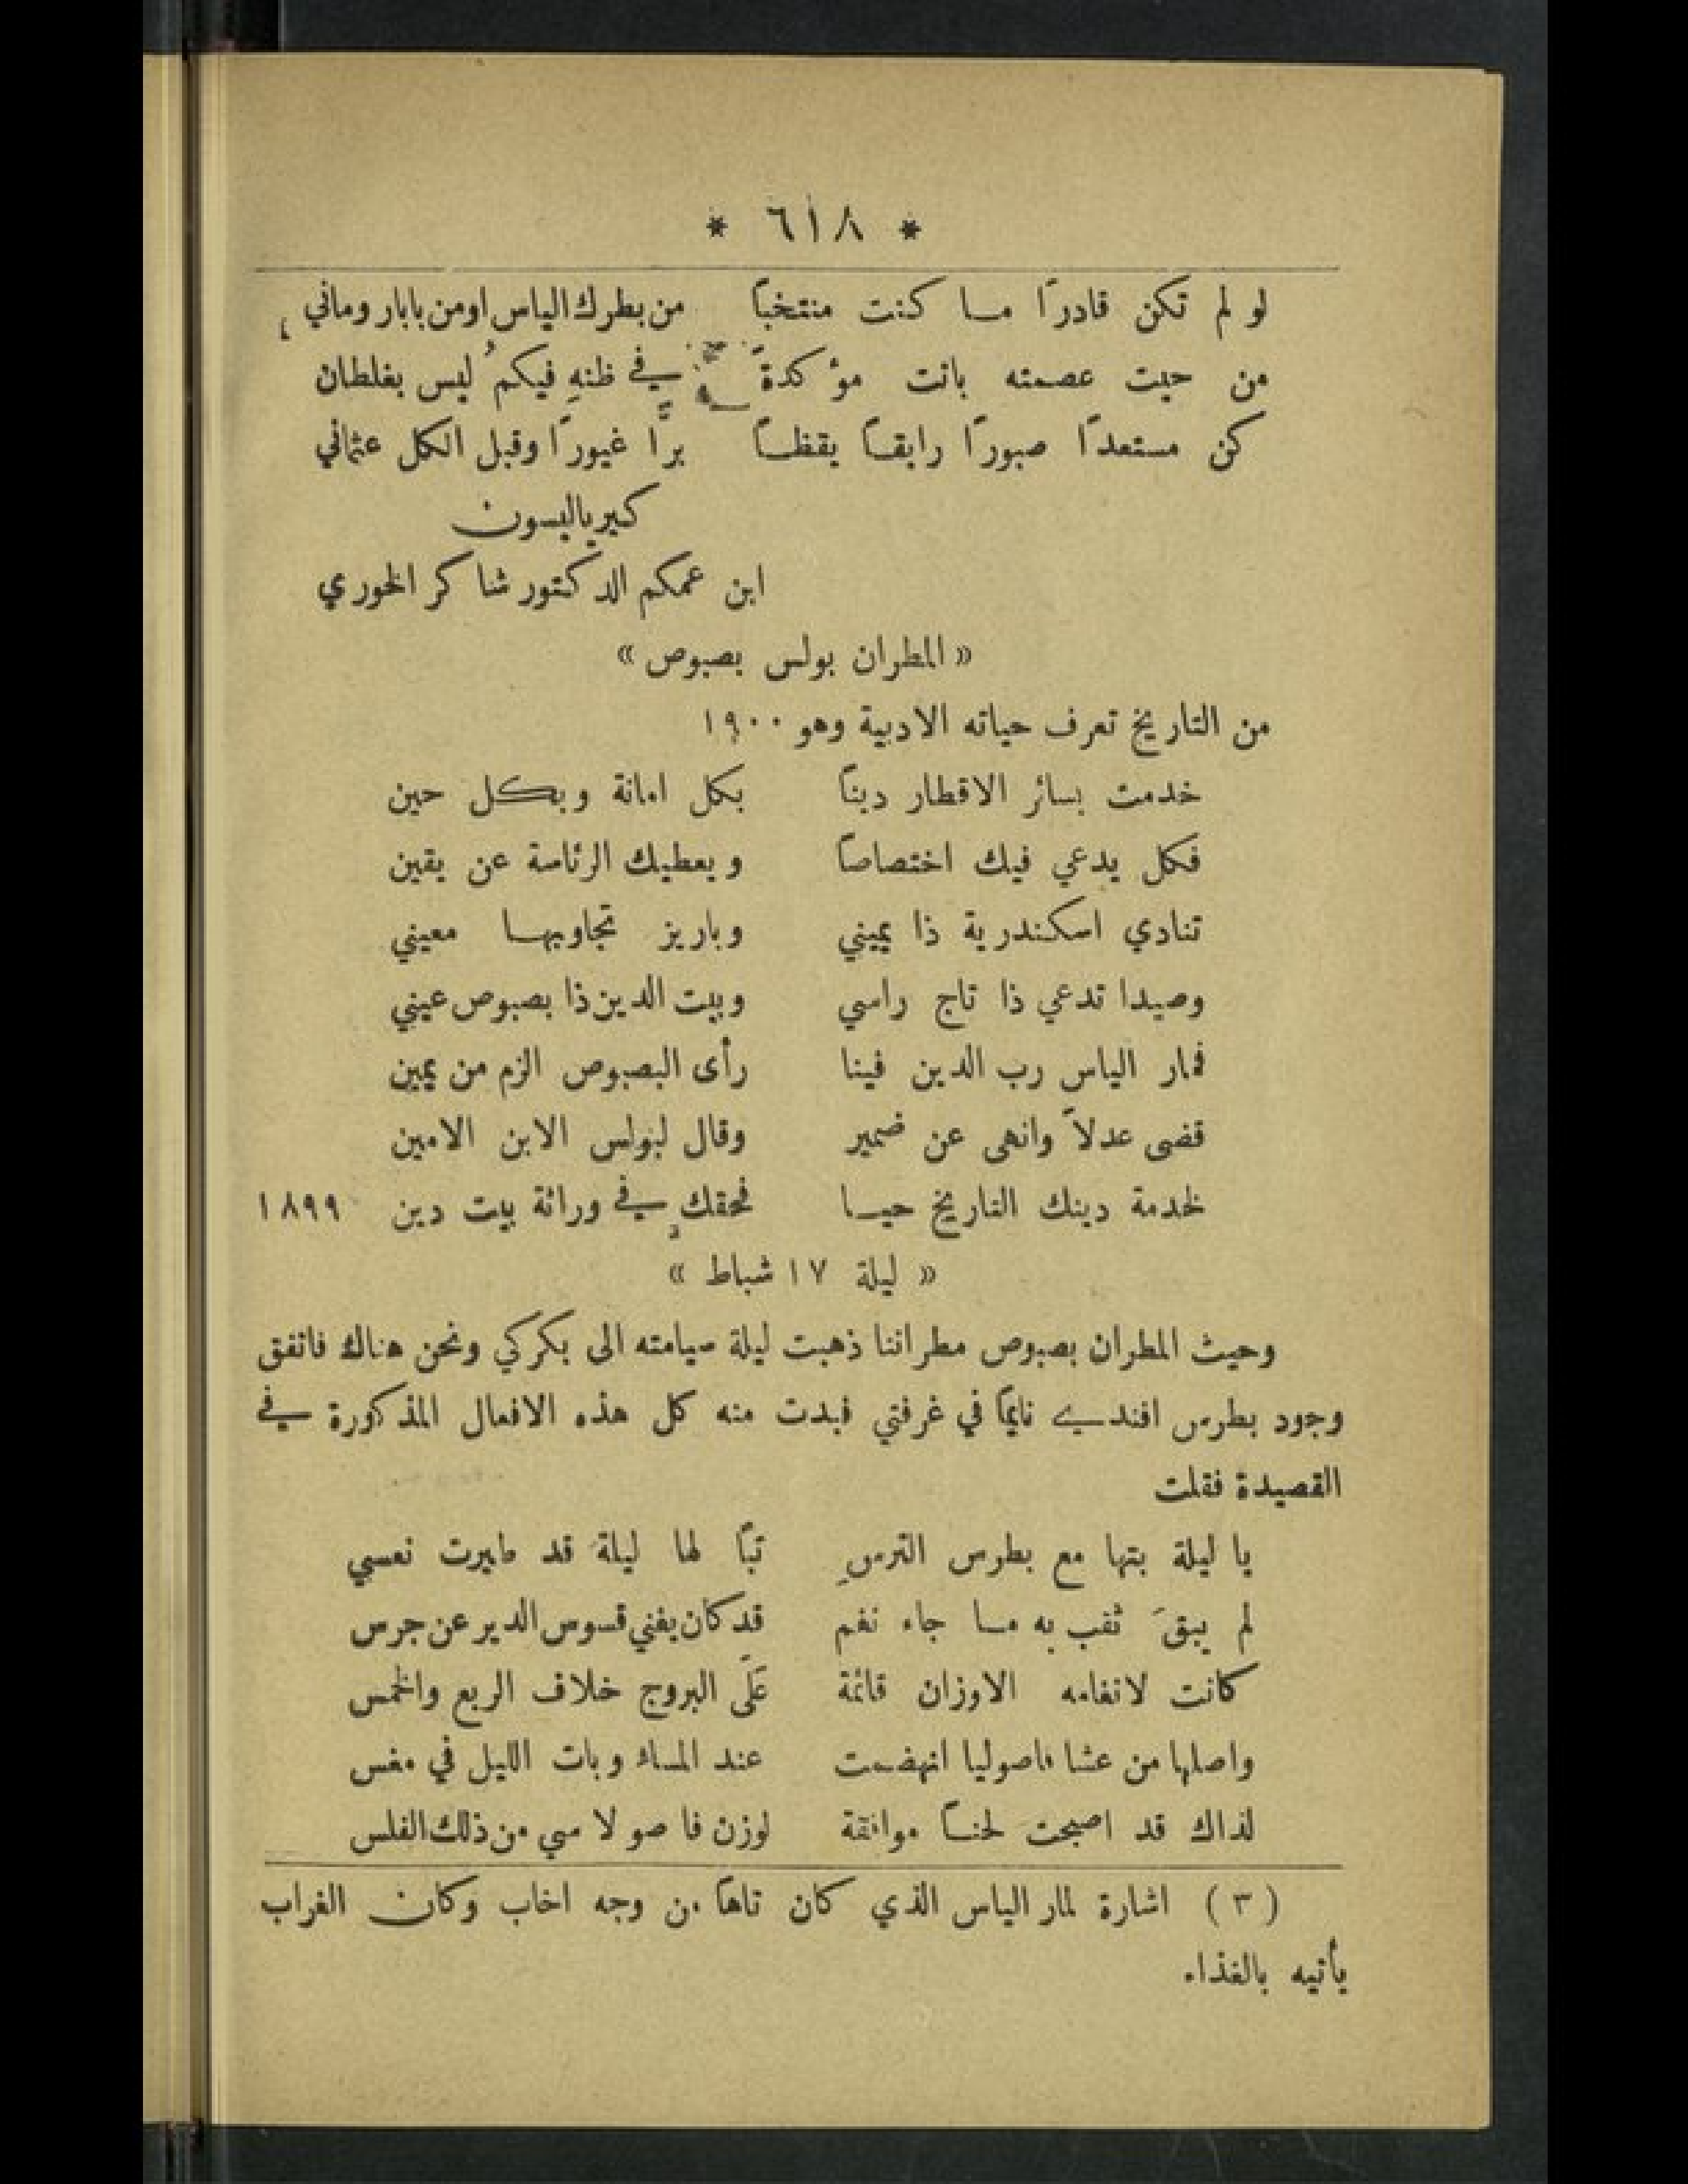 * ٦١٨ *
لو لم تكن قادرًا مـا كنت منتخبًا من بطرك الياس او من بابار وماني
من حيث عصمته بانت مؤكدةً في ظنهِ فيكمُ ليس بغلطان
كن مستعدًا صبورًا رايقـًا يقظـًا برًّا غيورًا وقبل الكل عثماني
كيرياليسون
ابن عمكم الدكتور شاكر الخوري
« المطران بولس بصبوص »
من التاريخ تعرف حياته الادبية وهو ١٩٠٠
خدمت بسائر الاقطار دينًا بكل امانة وبكل حين
فكل يدعي فيك اختصاصًا ويعطيك الرئاسة عن يقين
تنادي اسكندرية ذا يميني وباريز تجاوبهـا معيني
وصيدا تدعي ذا تاج راسي وبيت الدين ذا بصبوص عيني
فمار الياس رب الدين فينا رأى البصبوص الزم من يمين
قضى عدلاً وانهى عن ضمير وقال لبولس الابن الامين
لخدمة دينك التاريخ حيـا فحقك في وراثة بيت دين ١٨٩٩
« ليلة ١٧ شباط »
وحيث المطران بصبوص مطراننا ذهبت ليلة سيامته الى بكركي ونحن هناك فاتفق
وجود بطرس افندي نايمًا في غرفتي فبدت منه كل هذه الافعال المذكورة في
القصيدة فقلت
يا ليلة بتها مع بطرس الترسِ تبًا لها ليلة قد طيرت نعسي
لم يبقَ ثقب به مـا جاء نغم قد كان يغني قسوس الدير عن جرس
كانت لانغامه الاوزان قائمة عَلَى البروج خلاف الربع والخمس
واصلها من عشا فاصوليا انهضمت عند المساء وبات الليل في مغس
لذاك قد اصبحت لحنـًا موافقة لوزن فا صو لا سي من ذلك الفلس
( ٣ ) اشارة لمار الياس الذي كان تاهًا من وجه اخاب وكان الغراب
يأتيه بالغذاء